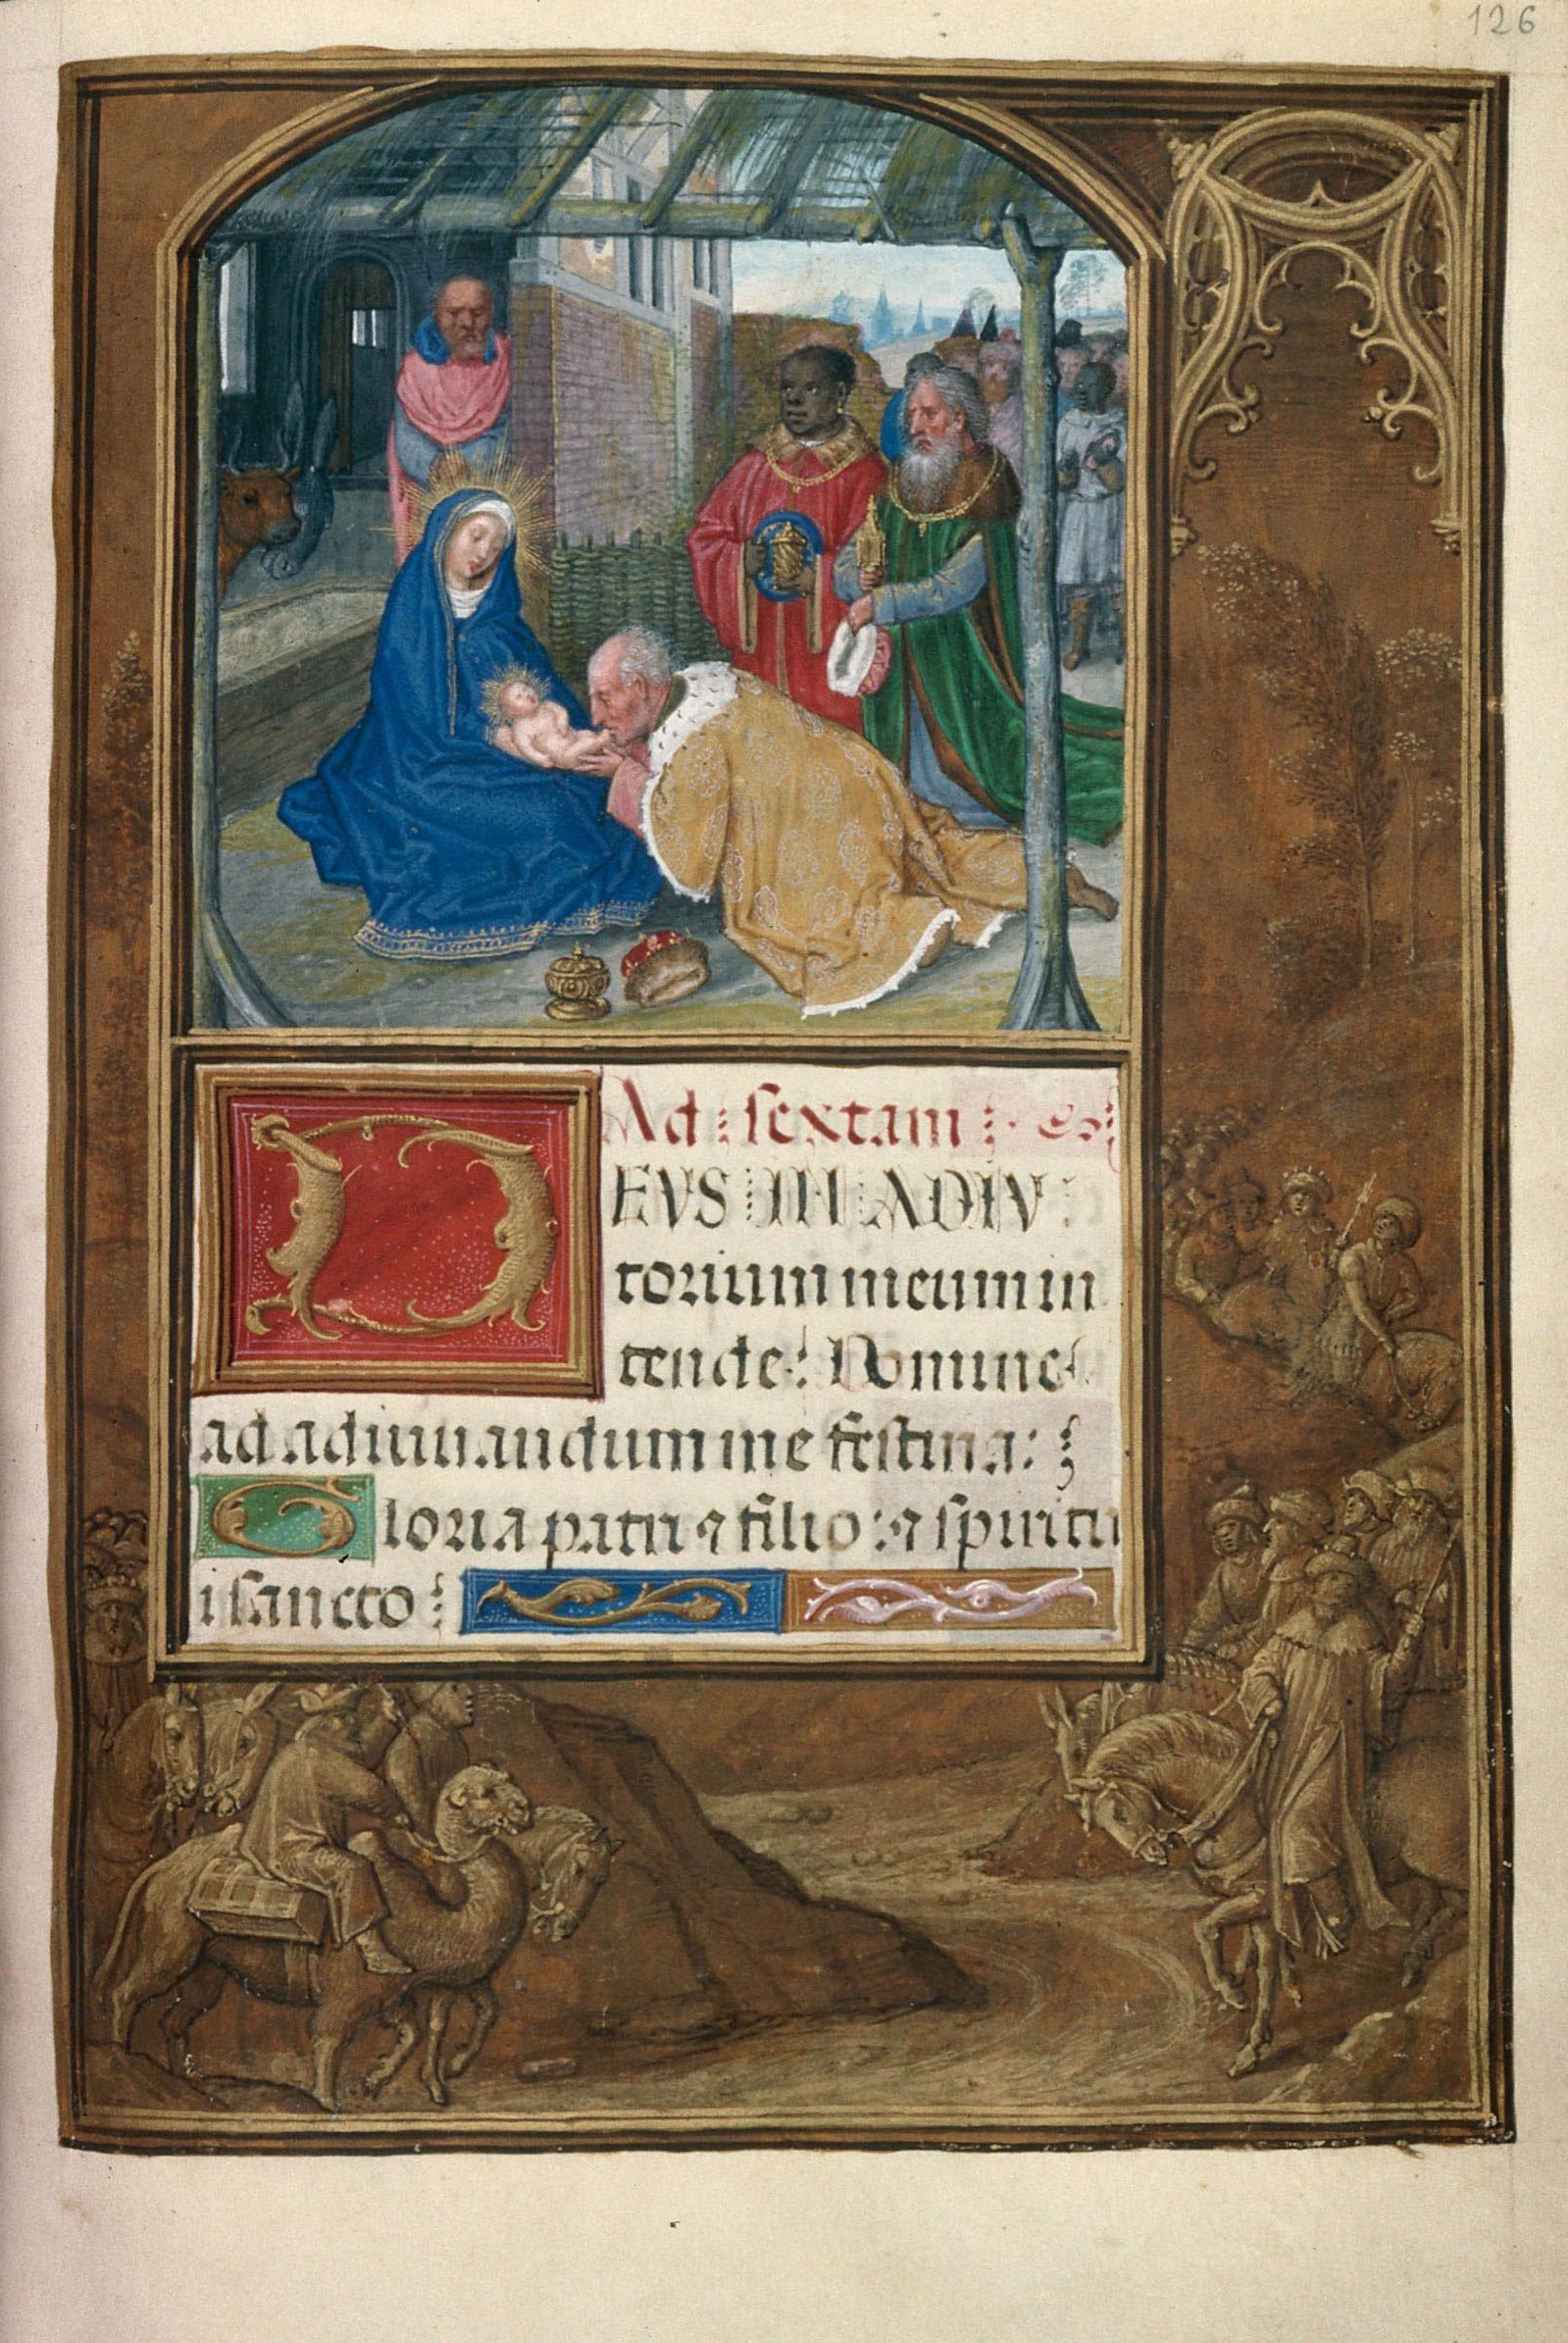 126
Ad sextam
DEVS IN ADIV
torium meum in
tende: Domine
ad adiuuandum me festina:
Gloria patri ⁊ filio: ⁊ spiritu
i sancto: